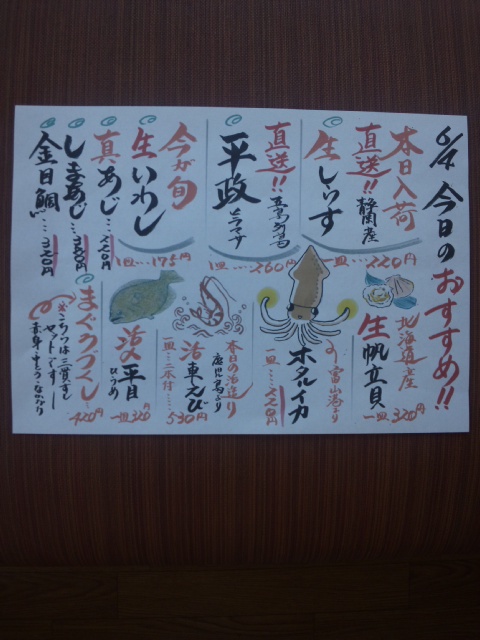 6/4 今日のおすすめ!!
本日入荷
直送!! 静岡産
生しらす
一皿…220円
直送!! 五島列島
平政
ヒラマサ
1皿…260円
今が旬
生いわし
1皿…175円
真あじ…220円
しまあじ…380円
金目鯛…320円
北海道産
生帆立貝
一皿320円
富山港より
ホタルイカ
一皿…220円
本日の活造り
鹿児島より
活車えび
一皿…二本付…530円
活〆平目
ひらめ
一皿320円
まぐろづくし…420円
※こちらは三貫すし
セットです!
赤身・中とろ・ながとり